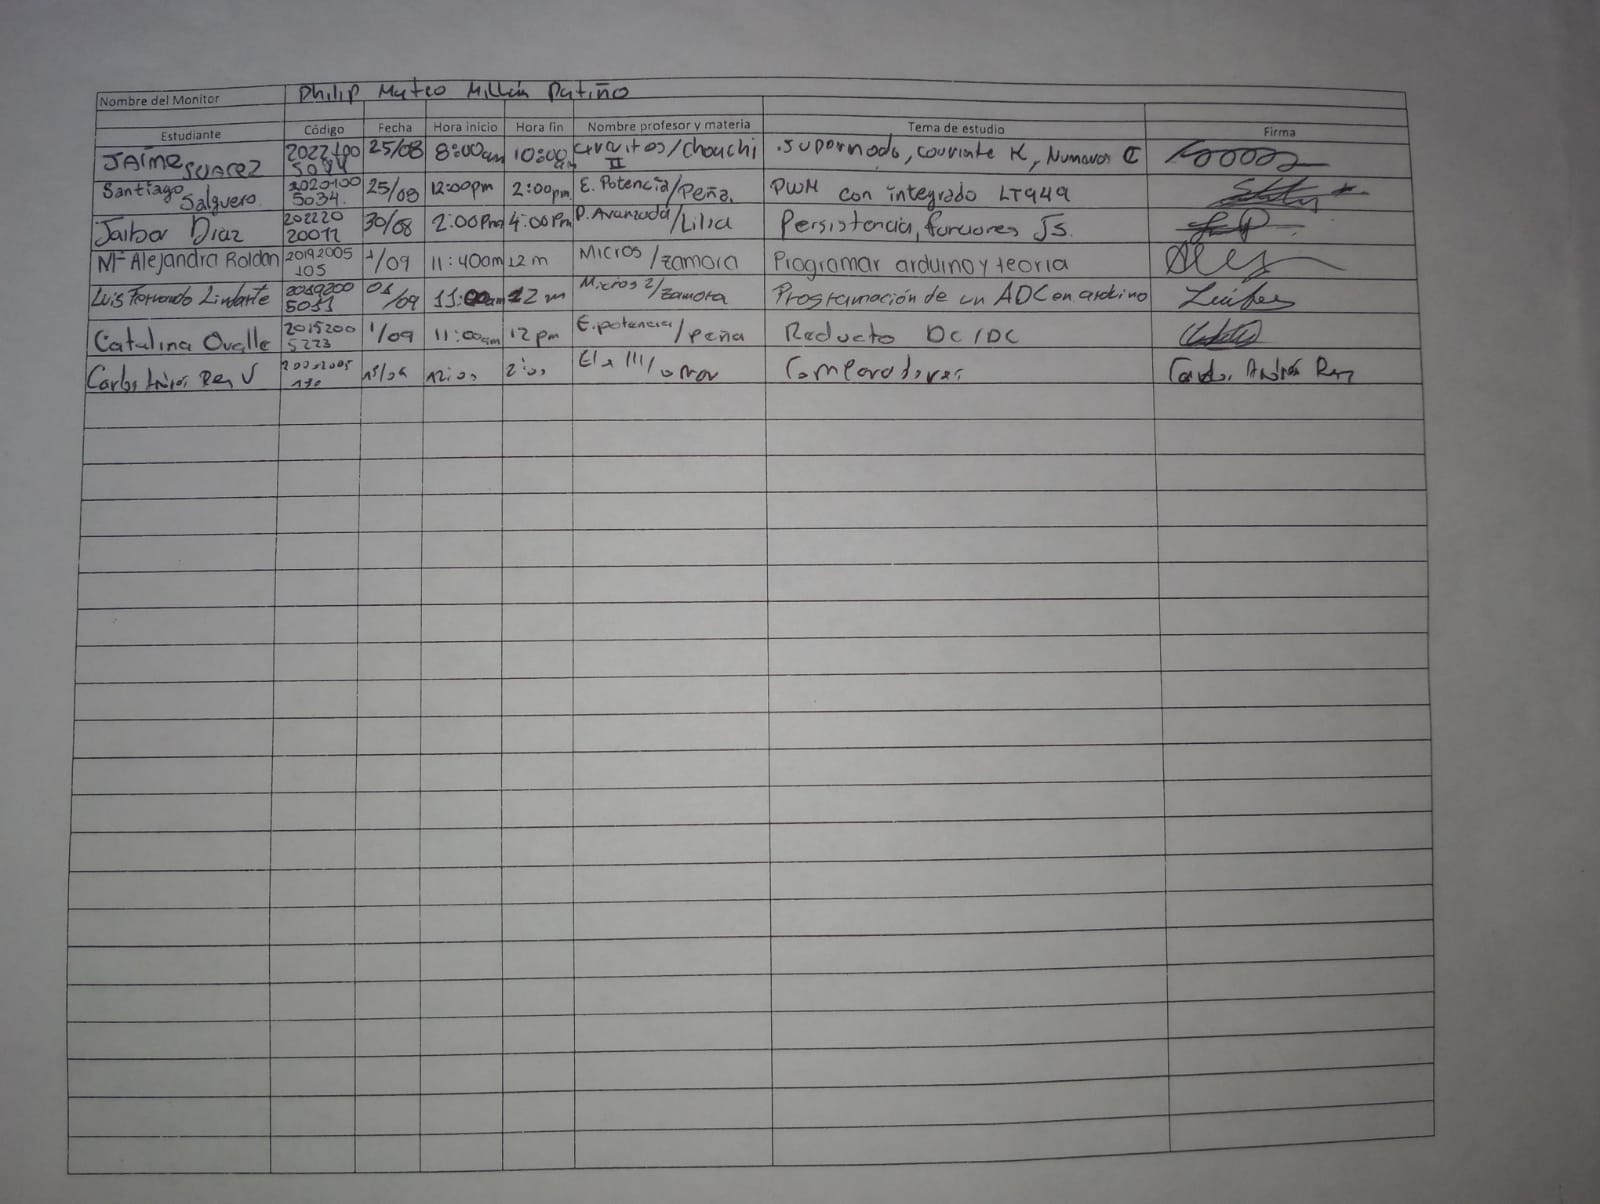 Nombre del Monitor Philip Mateo Millán Patiño
Estudiante Código Fecha Hora inicio Hora fin Nombre profesor y materia Tema de estudio Firma
Jaime Suarez 2022100 25/08 8:00am 10:00am Circuitos II/Chouchi .Supernodo, corriente K, Numeros ℂ
Santiago Salguero 2020100 5034 25/08 12:00pm 2:00pm E. Potencia/Peña. PWM con integrado LT949
Jaiber Diaz 202220 20011 30/08 2:00Pm 4:00Pm P. Avanzada/Lilia Persistencia, funciones JS.
Mª Alejandra Roldan 20192005 105 1/09 11:40am 12m Micros/Zamora Programar arduino y teoria
Luis Fernando Lindarte 2019200 5031 01/09 11:00am 12m Micros 2/Zamora Programación de un ADC en arduino
Catalina Ovalle 2015200 5223 1/09 11:00am 12pm E.potencia/Peña Reducto DC/DC
Carlos 12:00 2:00 III Comparadores Carlos Andrés